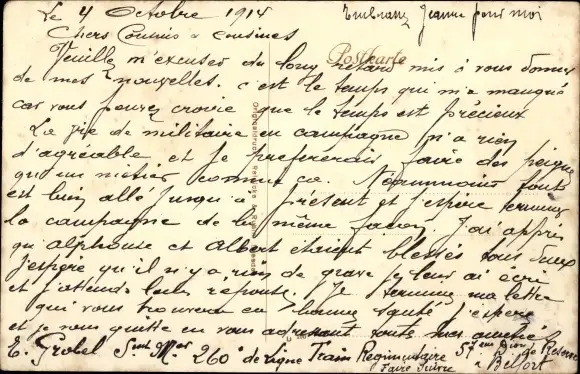 Le 4 Octobre 1914
Embrassez Jeanne pour moi
Chers Cousins & Cousines
Postkarte
Veuillez m'excuser du long retard mis à vous donner
de mes nouvelles. c'est le temps qui m'a manqué
car vous pouvez croire que le temps est précieux
La vie de militaire en campagne n'a rien
d'agréable et je prefererais faire des peignes
qu'un métier comme ça. Néanmoins tout
est bien allé jusqu'à présent et j'espère terminer
la campagne de la même façon. J'ai appris
qu'alphonse et Albert étaient blessés tous deux
j'espère qu'il n'y a rien de grave je leur ai écrit
et j'attends leur reponse. Je termine ma lettre
qui vous trouvera en bonne santé j'espère
et je vous quitte en vous adressant toutes mes amitiés
E. Grobel Sgent Mor 260e de Ligne Train Régimentaire 57ème Dion de Réserve
Faire Suivre à Belfort